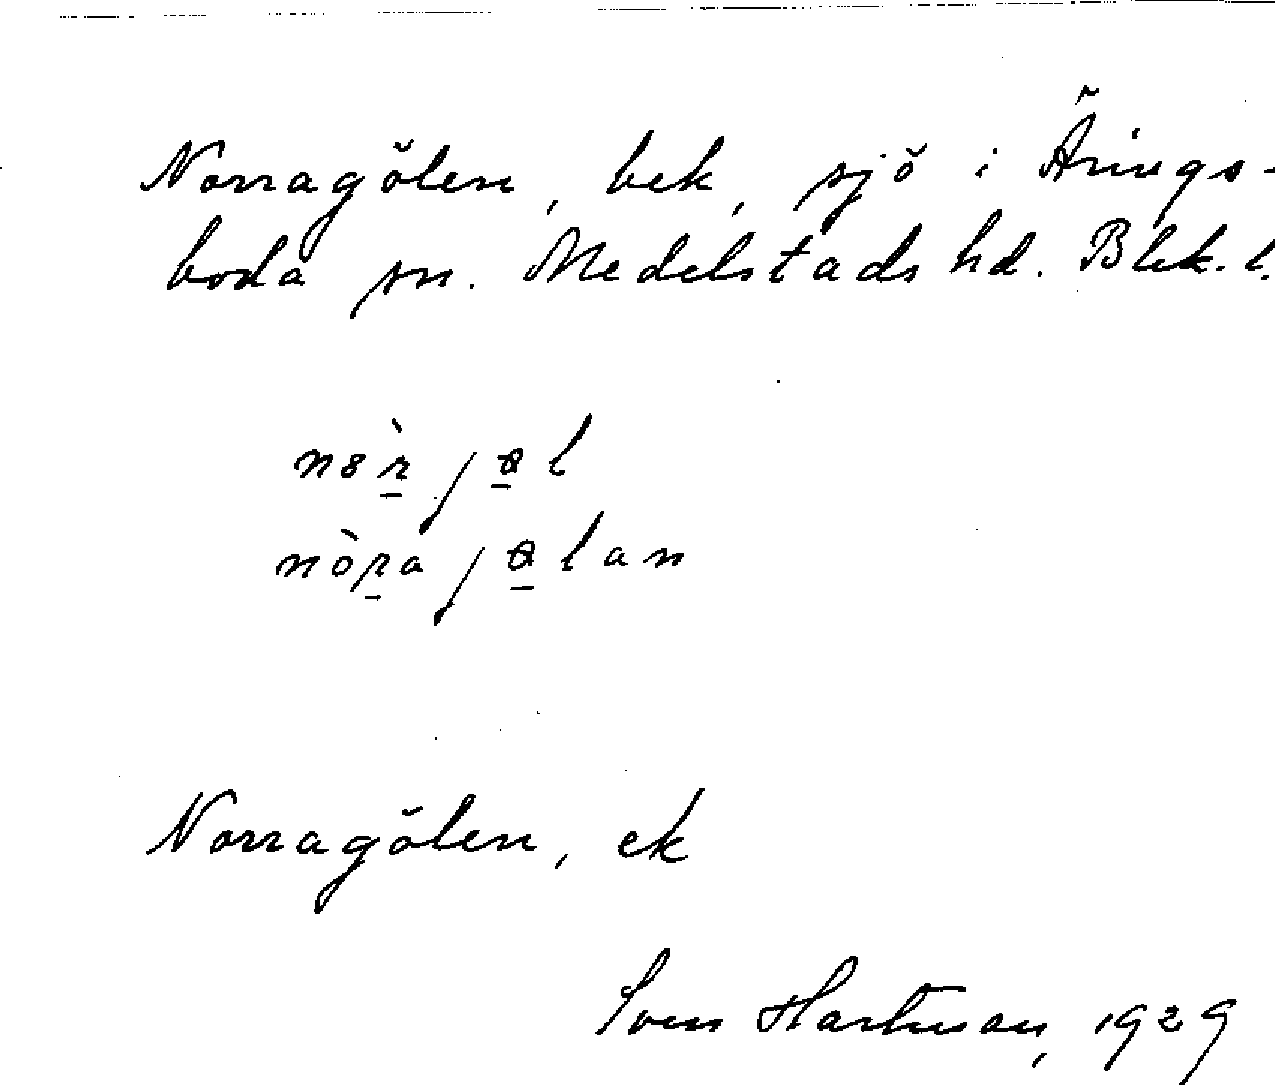 Norragölen, bek, sjö i Ärings-
boda sn. Medelstads hd. Blek. l.
nòra jølan
Norragölen, ek
Sven Hartman, 1929